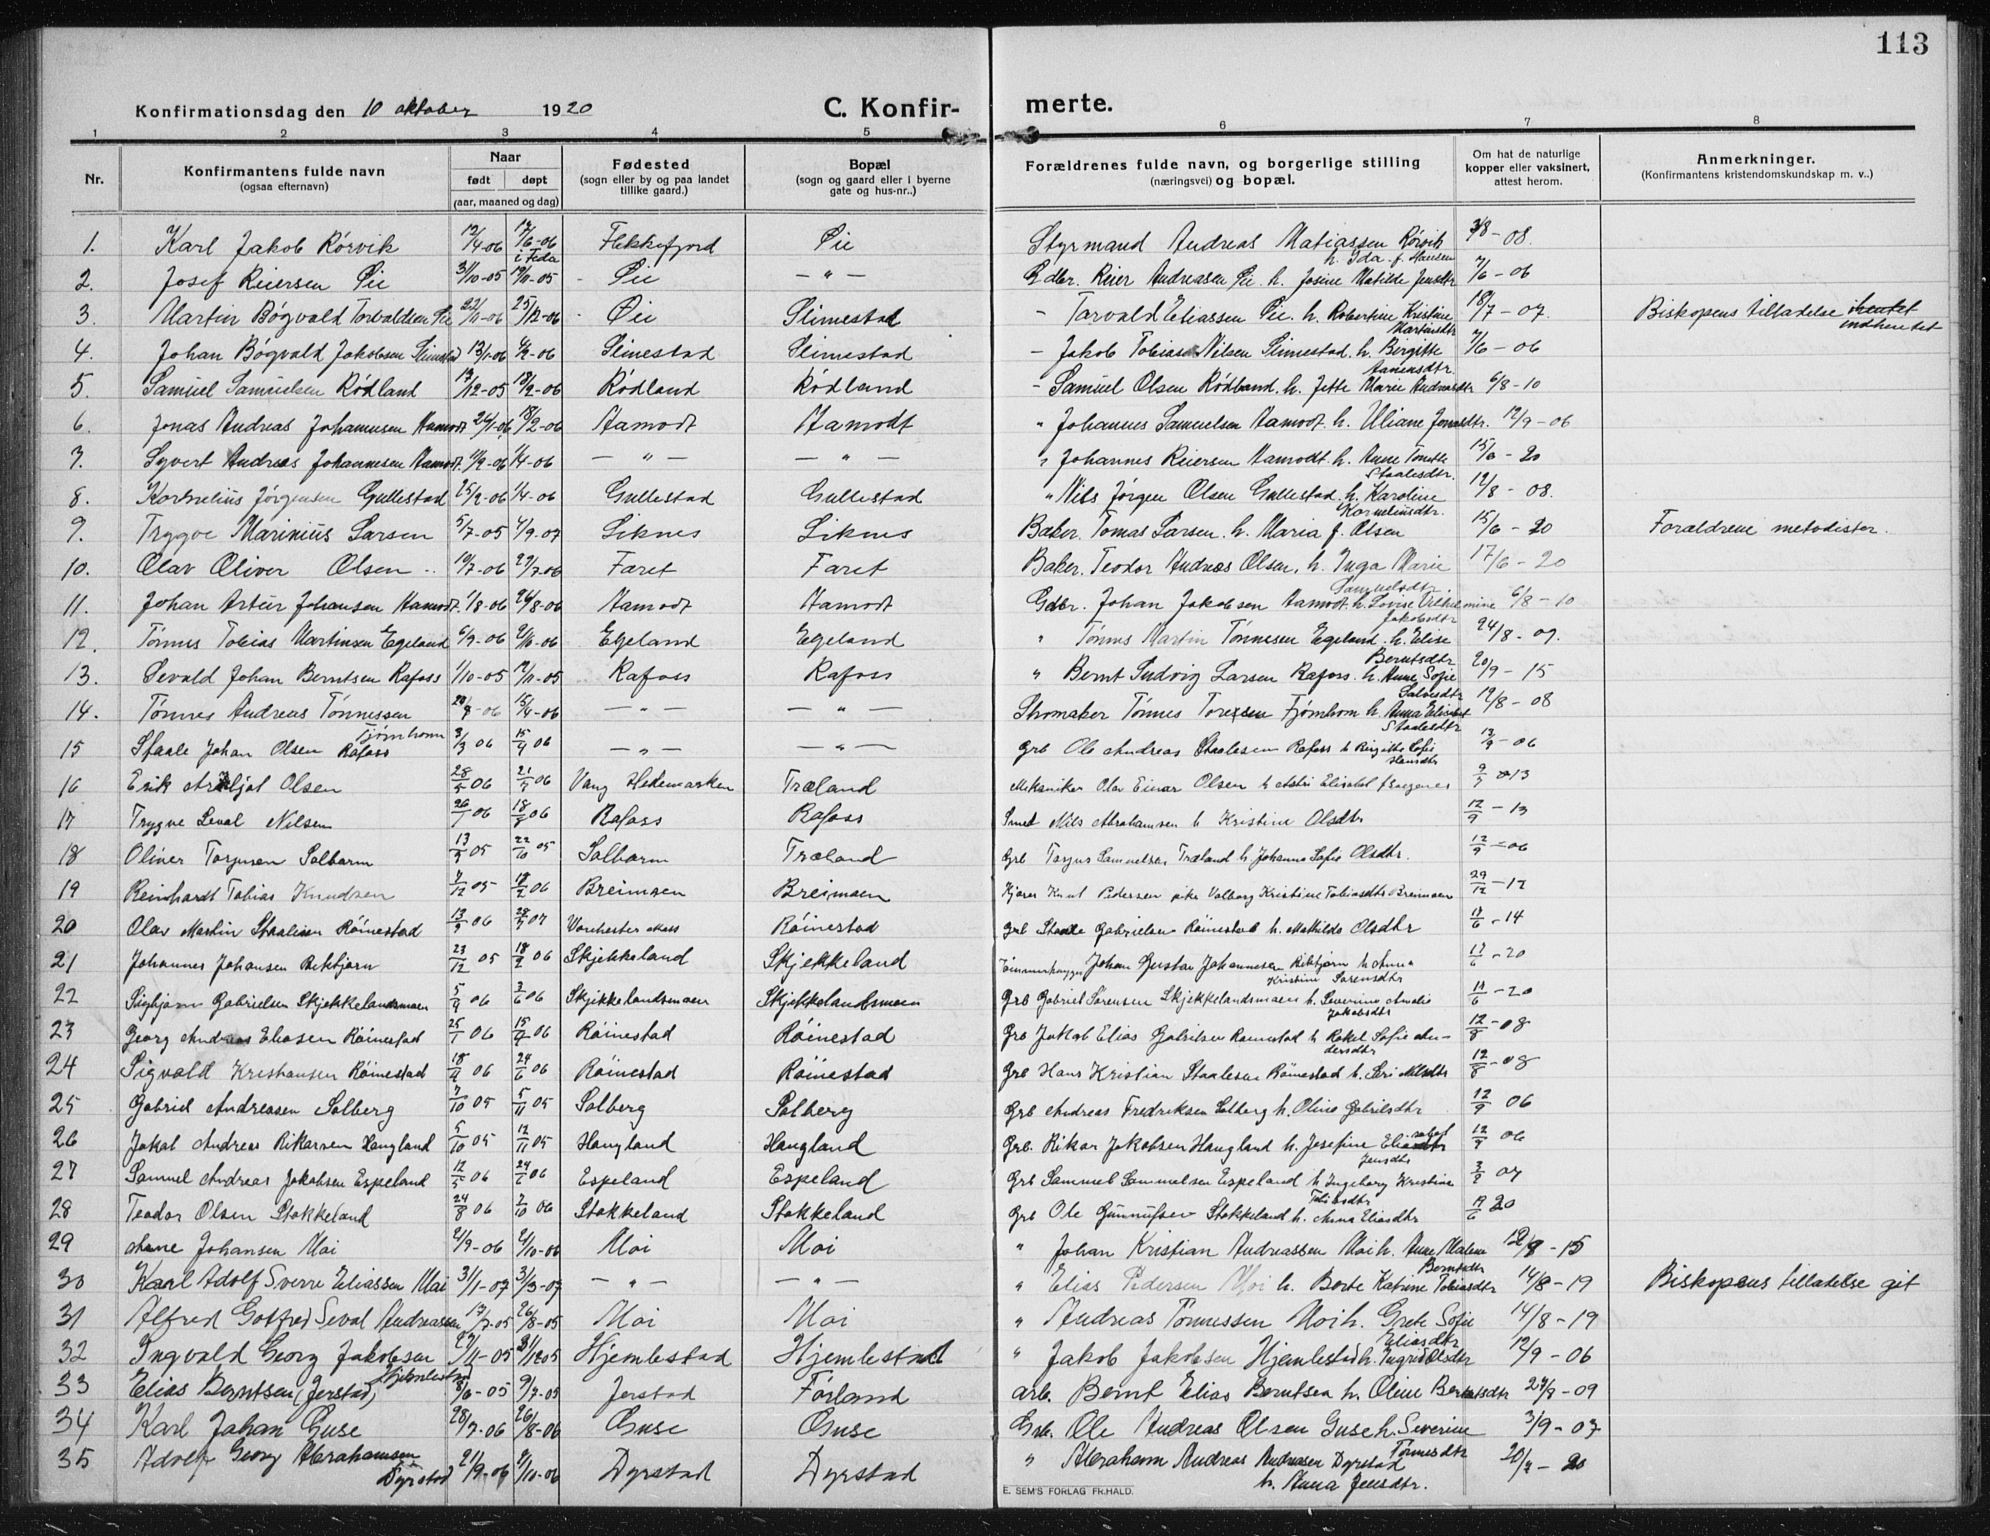 113
Konfirmationsdag den 10 oktober 1920 C. Konfir- merte.
1 2 3 4 5 6 7 8
Nr. Konfirmantens fulde navn (ogsaa efternavn) Naar født døpt (aar, maaned og dag) Fødested (sogn eller by og paa landet tillike gaard.) Bopæl (sogn og gaard eller i byerne gate og hus-nr..) Forældrenes fulde navn, og borgerlige stilling (næringsvei) og bopæl. Om hat de naturlige kopper eller vaksinert, attest herom. Anmerkninger. (Konfirmantens kristendomskundskap m. v..)
1. Karl Jakob Rórvik 12/4-06 17/6-06 i Feda Flekkefjord Øie Styrmand Andreas Matiassen Rórvik h. Ida f. Hansen 3/8-08.
2. Josef Reiersen Øie 3/10-05 19/11-05 - Øie — " — Gdbr. Reier Andreasen Øie h. Josine Matilde Jensdtr 7/6-06
3. Martin Bógvald Torvaldsen Øie 22/11-06 25/12-06 - Øie Slimestad - Torvald Eliassen Øie. h. Robertine Kristine Martinsdtr 18/7-07. Biskopens tilladelse indhentet
4. Johan Bógvald Jakobsen Slimestad 13/1-06 4/2-06 Slimestad Slimestad - Jakob Tobias Nilsen Slimestad. h. Birgitte Aanensdtr. 7/6-06
5. Samuel Samuelsen Ródland 17/12-05 18/2-06 Ródland Ródland - Samuel Olsen Ródland. h. Jette Marie Andreasdtr 6/8-10
6. Jonas Andreas Johannesen Aamodt 24/1-06 18/2-06 Aamodt Aamodt " Johannes Samuelsen Aamodt. h. Uliane Jonasdtr. 12/9-06
7. Syvert Andreas Johannesen Aamodt. 11/2-06 1/4-06 — " — — " — " Johannes Reiersen Aamodt. h. Anne Tomette Staalesdtr. 15/6-20
8. Kornelius Jórgensen Gullestad 25/2-06 1/4-06 Gullestad Gullestad " Nils Jórgen Olsen Gullestad. h. Karoline Korneliusdtr. 12/8-08.
9. Trygve Marinius Larsen 5/7-05 4/9-07 Liknes Liknes Baker. Tomas Larsen. h. Maria f. Olsen 15/6-20 Forældrene metodister.
10. Olav Oliver Olsen 10/7-06 29/7-06 Faret Faret Baker. Teodor Andreas Olsen. h. Inga Marie Samuelsdtr. 17/6-20
11. Johan Artur Johansen Aamodt. 1/8-06 26/8-06 Aamodt Aamodt Gdbr. Johan Jakobsen Aamodt. h. Lovise Vilhelmine Jakobsdtr 6/8-10
12. Tónnes Tobias Martinsen Egeland 6/9-06 4/11-06 Egeland Egeland " Tónnes Martin Tónnesen Egeland. h. Elise Berntsdtr 24/8-09.
13. Sevald Johan Berntsen Rafoss 1/10-05 12/11-05 Rafoss Rafoss " Bernt Ludvig Larsen Rafoss. h. Anne Sofie Salvesdtr 20/9-15
14. Tónnes Andreas Tónnessen Fjórnhom 15/4-06 — " — — " — Skomaker Tónnes Toresen Fjómhom h. Anna Elisabet Staalesdtr 12/8-08
15 Staale Johan Olsen Rafoss 3/3 06 15/4 06 — " — — " — Grb Ole Andreas Staalesen Rafoss h Birgitte Sofie Hansdtr 12/9-06
16 Erik Olsen 28/5 06 21/7 06 Vang Hedemarken Træland Mekaniker Olav Einar Olsen h Astri Elisabet
17 Trygve Seval Nilsen 26/1 06 18/8 06 Rafoss Rafoss Smed Nils Abrahamsen h Kristine Olsdtr 12/9-13
18 Oliver Torjusen Salbarm 13/9 05 22/10 05 Salbarm Træland Grb Torjus Samuelsen Træland h. Johanne Sofie Olsdtr. 12/9-06
19 Reinhardt Tobias Knudsen 7/12 05 18/2 06 Breimoen Breimoen Kjører Knut Pedersen pike Valborg Kristine Tobiasdtr Breimoen 29/12-12
20 Olav Martin Staalesen Róinestad 13/9 06 07 Vorchester Mass Róinestad Grb Staale Gabrielsen Róinestad h. Mathilde Olsdtr 17/6-14
21 Johannes Johansen Birkbjørn 23/12 05 18/2 06 Skjekkeland Skjekkeland Tømmerhugger Johan Gustav Johannesen Birkbjørn h Anna Kristine Sorensdtr 17/6-20
22 Sigbjørn Gabrielsen Skjekkelandsmoen 5/4 06 3/6 06 Skjekkelandsmoen Skjekkelandsmoen Grb Gabriel Sørensen Skjekkelandsmoen h. Severine Amalie Jakobsdtr 11/6-20
23 Georg Andreas Eliasen Róinestad 25/1 06 15/4 06 Róinestad Róinestad Grb Jakob Elias Gabrielsen Roinestad h Rakel Sofie An-dersdtr 12/8-08
24 Sigvald Kristiansen Róinestad 18/4 06 24/6 06 Róinestad Róinestad Grb Hans Kristian Staalesen Róinestad h. Seri Nilsdtr 12/8-08
25 Gabriel Andreasen Solberg 7/10 05 5/11 05 Solberg Solberg Grb Andreas Fredriksen Solberg h. Oline Gabrielsdtr 12/9 06
26 Jakob Andreas Rikarsen Haugland 5/10 05 12/11 05 Haugland Haugland Grb. Rikar Jakobsen Haugland h. Josefine Jensdtr 12/9 06
27 Samuel Andreas Jakobsen Espeland 12/5 06 24/6 06 Espeland Espeland Grb Sammel Sammelsen Espeland h Ingeborg Kristine Tobiasdtr 07
28 Teodor Olsen Stokkeland 24/8 06 7/10 06 Stokkeland Stokkeland Grb Ole Gunnufsen Stokkeland h. Anna Eliasdtr 17/6 20
29 Arne Johansen Moi 2/9-06 21/10-06 Moi Moi " Johan Kristian Andreassen Moi h. Anne Malene Berntsdtr 12/8-15
30 Karl Adolf Sverre Eliassen Moi 31/1-07 31/3-07 — " — — " — " Elias Pedersen Moi h. Borte Katrine Tobiasdtr 14/8-19 Biskopens tilladelse git
31 Alfred Gotfred Seval Andreassen 17/7-05 26/8-05 Moi Moi " Andreas Tónnessen Moi h. Grete Sofie Eliasdtr 14/8-19
32 Ingvald Georg Jakobsen Hjemlestad 27/11-05 31/12-05 Hjemlestad Hjemlestad " Jakob Jakobsen Hjemlestad h. Ingrid Olsdtr 12/9-06
33 Elias Berntsen (Jerstad) 8/6-05 9/7-05 Jerstad Förland arb. Bernt Elias Berntsen h. Oline Berntsdtr 24/9-09
34 Karl Johan Guse 28/7-06 26/8-06 Guse Guse Grb. Ole Andreas Olsen Guse h. Severine Tónnesdtr 3/9-07
35 Adolf Georg Abrahamsen Dyrstad 21/9-06 21/10-06 Dyrstad Dyrstad " Abraham Andreas Andreasen Dyrstad h. Anna Jensdtr. 20
E. SEM'S FORLAG FR.HALD.